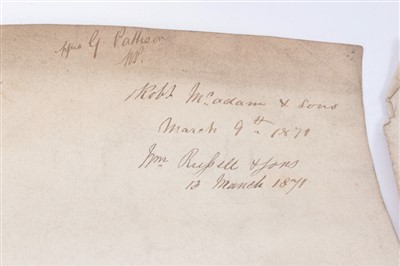 G Pattison
Robt McAdam & Sons
March 9th 1871
Wm Russell & Sons
13 March 1871